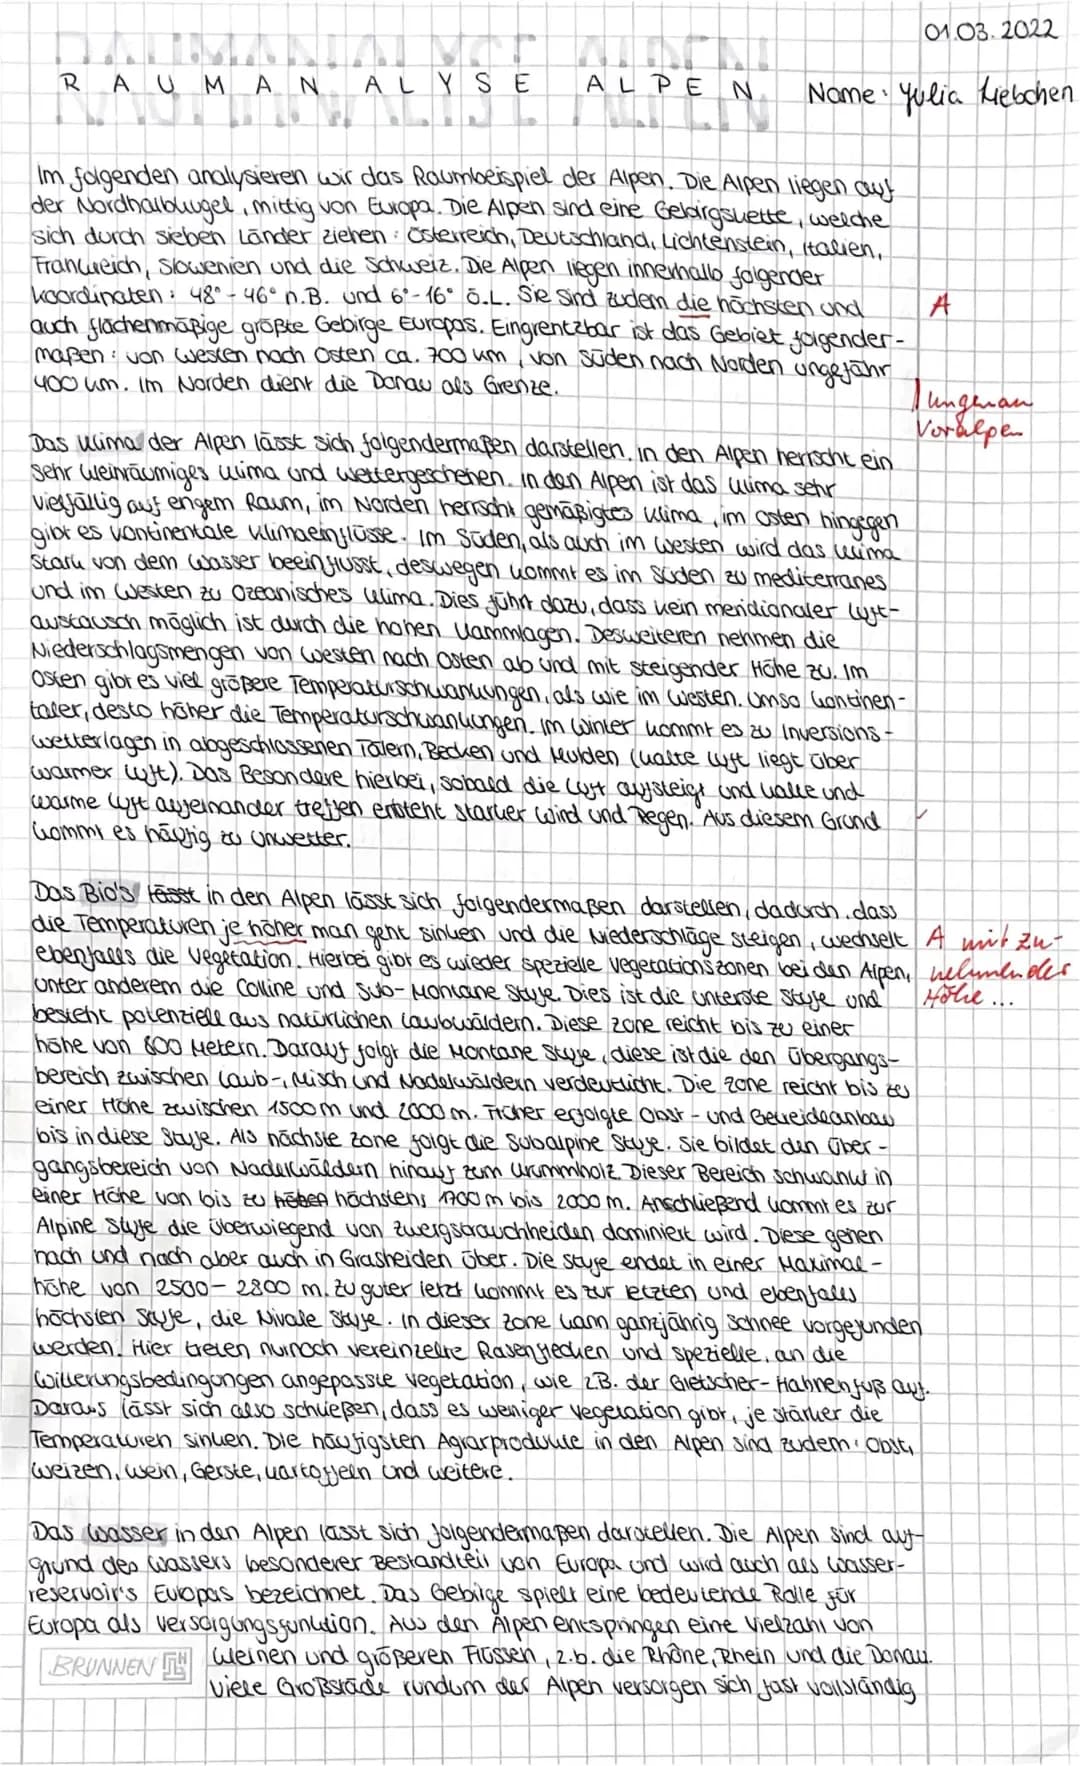 01.03.2022
RAUMANALYSE ALPEN
Name: Yulia Liebchen
Im folgenden analysieren wir das Raumbeispiel der Alpen. Die Alpen liegen auf
der Nordhalbkugel, mittig von Europa. Die Alpen sind eine Gebirgskette, welche
sich durch sieben Länder ziehen: Österreich, Deutschland, Lichtenstein, Italien,
Frankreich, Slowenien und die Schweiz. Die Alpen liegen innerhalb folgender
Koordinaten: 48°-46° n.B. und 6°-16° ö.L. Sie sind zudem die höchsten und
A
auch flächenmäßige größte Gebirge Europas. Eingrentzbar ist das Gebiet folgender-
maßen: von Westen nach Osten ca. 700 km, von Süden nach Norden ungefähr
400 km. Im Norden dient die Donau als Grenze.
ungenau
Voralpen
Das Klima der Alpen lässt sich folgendermaßen darstellen. In den Alpen herrscht ein
sehr kleinräumiges Klima und Wettergeschehen. In den Alpen ist das Klima sehr
vielfällig auf engem Raum, im Norden herrscht gemäßigtes Klima, im Osten hingegen
gibt es kontinentale Klimaeinflüsse. Im Süden, als auch im Westen wird das Klima
stark von dem Wasser beeinflusst, deswegen kommt es im Süden zu mediterranes
und im Westen zu Ozeanisches Klima. Dies führt dazu, dass kein meridionaler Luft-
austausch möglich ist durch die hohen Kammlagen. Desweiteren nehmen die
Niederschlagsmengen von Westen nach Osten ab und mit steigender Höhe zu. Im
Osten gibt es viel größere Temperaturschwankungen, als wie im Westen. Umso kontinen-
taler, desto höher die Temperaturschwankungen. Im Winter kommt es zu Inversions-
wetterlagen in abgeschlossenen Tälern, Becken und Mulden (kalte Luft liegt über
warmer Luft). Das Besondere hierbei, sobald die Luft aufsteigt und kalte und
warme Luft aufeinander treffen entsteht starker Wind und Regen. Aus diesem Grund
kommt es häufig zu Unwetter.
Das Bio's lässt in den Alpen lässt sich folgendermaßen darstellen, dadurch, dass
die Temperaturen je höher man geht sinken und die Niederschläge steigen, wechselt
A mit zu-
ebenfalls die Vegetation. Hierbei gibt es wieder spezielle Vegetationszonen bei den Alpen,
nehmender
unter anderem die Colline und Sub-Montane Stufe. Dies ist die unterste Stufe und
Höhe...
besteht potenziell aus natürlichen Laubwäldern. Diese Zone reicht bis zu einer
höhe von 800 Metern. Darauf folgt die Montane Stufe, diese ist die den Übergangs-
bereich zwischen Laub-, Misch und Nadelwäldern verdeutlicht. Die Zone reicht bis zu
einer Höhe zwischen 1500 m und 2000 m. Früher erfolgte Obst- und Getreideanbau
bis in diese Stufe. Als nächste Zone folgt die Subalpine Stufe. Sie bildet den Über-
gangsbereich von Nadelwäldern hinauf zum Krummholz. Dieser Bereich schwankt in
einer Höhe von bis zu höhen höchstens 1700 m bis 2000 m. Anschließend kommt es zur
Alpine Stufe die überwiegend von Zwergstrauchheiden dominiert wird. Diese gehen
nach und nach aber auch in Grasheiden über. Die Stufe endet in einer Maximal-
höhe von 2500-2800 m. Zu guter letzt kommt es zur letzten und ebenfalls
höchsten Stufe, die Nivale Stufe. In dieser Zone kann ganzjährig Schnee vorgefunden
werden. Hier treten nurnoch vereinzelte Rasenflecken und spezielle, an die
Witterungsbedingungen angepasste Vegetation, wie z.B. der Gletscher-Hahnenfuß auf.
Daraus lässt sich also schließen, dass es weniger Vegetation gibt, je stärker die
Temperaturen sinken. Die häufigsten Agrarprodukte in den Alpen sind zudem: Obst,
Weizen, Wein, Gerste, Kartoffeln und weitere.
Das Wasser in den Alpen lässt sich folgendermaßen darstellen. Die Alpen sind auf-
grund des Wassers besonderer Bestandteil von Europa und wird auch als Wasser-
reservoir's Europas bezeichnet. Das Gebirge spielt eine bedeutende Rolle für
Europa als Versorgungsfunktion. Aus den Alpen entspringen eine Vielzahl von
kleinen und größeren Flüssen, z.b. die Rhône, Rhein und die Donau.
BRUNNEN
Viele Großstäde rundum der Alpen versorgen sich fast vollständig